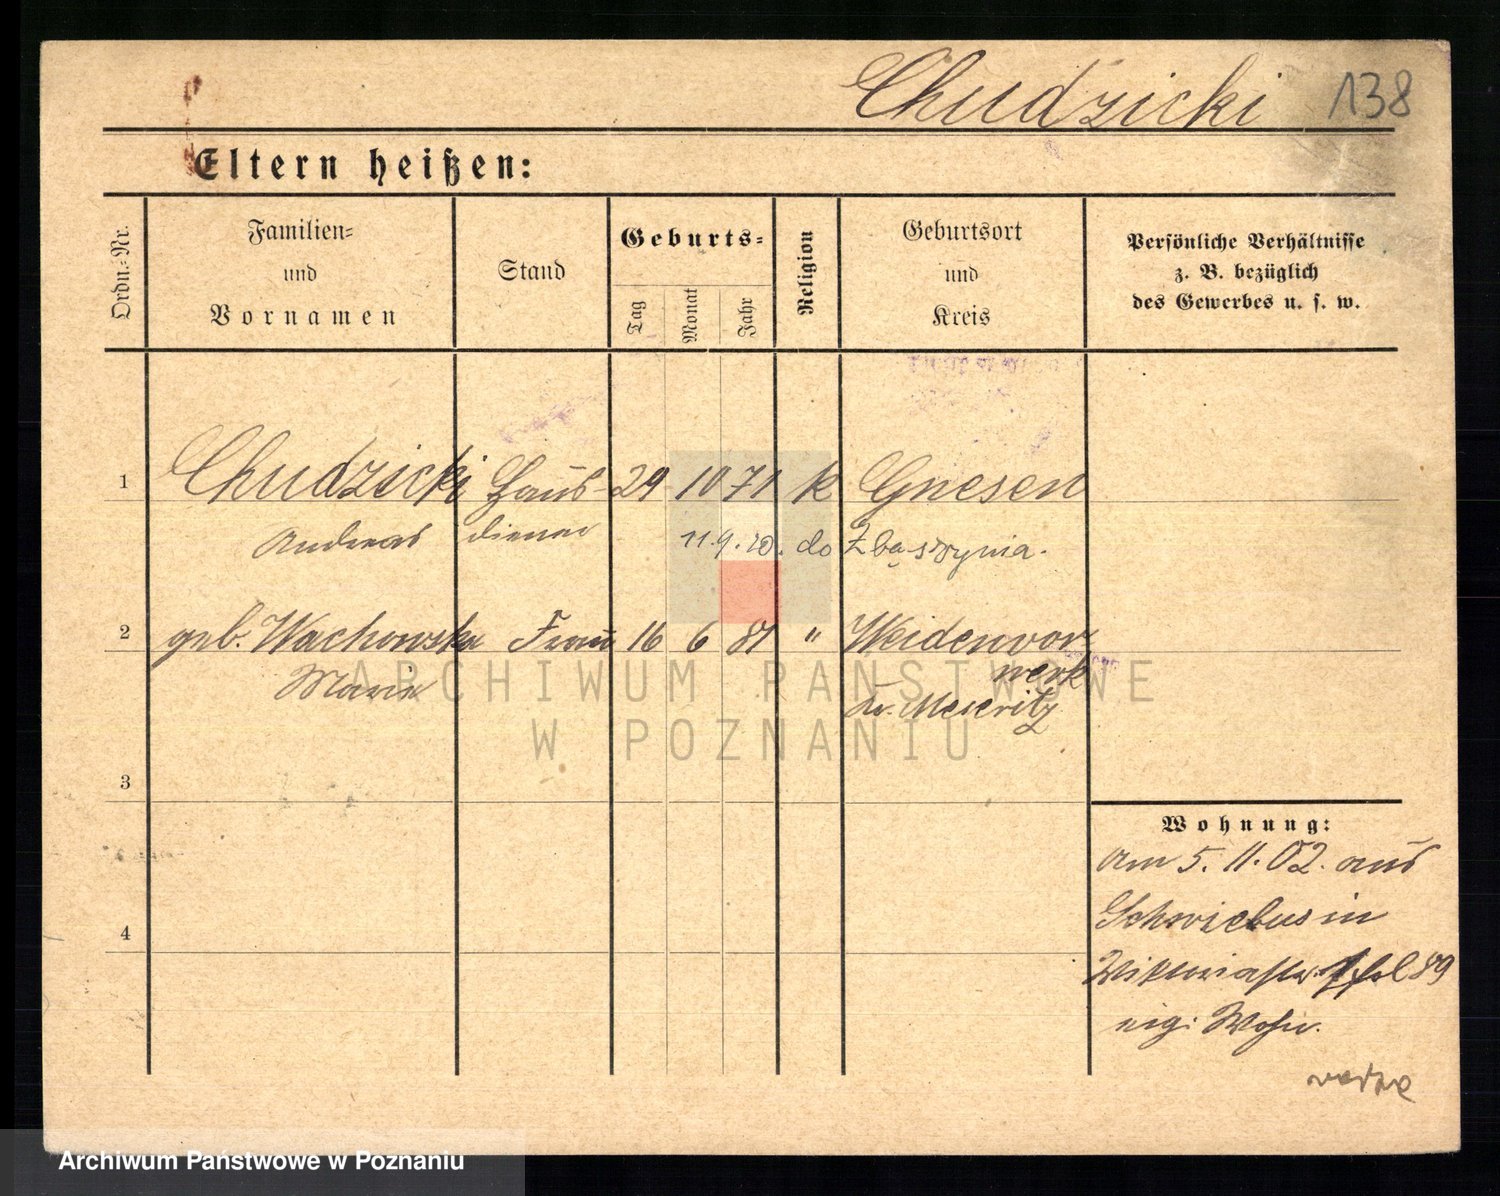 Chudzicki 138
Eltern heißen:
Ordn.-Nr.
Familien-
und
Vornamen
Stand
Geburts-
Tag
Monat
Jahr
Religion
Geburtsort
und
Kreis
Persönliche Verhältnisse
z. B. bezüglich
des Gewerbes u. s. w.
1 Chudzicki Haus- 29 10 71 k Gnesen
Andreas diener 11.9.20. do Zbąszynia.
2 geb. Wachowska Frau 16 6 81 " Weidenvor
werk
Marie Kr. Meseritz
ARCHIWUM PAŃSTWOWE
W POZNANIU
3
4
Wohnung:
am 5. 11. 02. aus
Schwiebus in
Viktoriastr. 89
eig: Wohn.
Archiwum Państwowe w Poznaniu